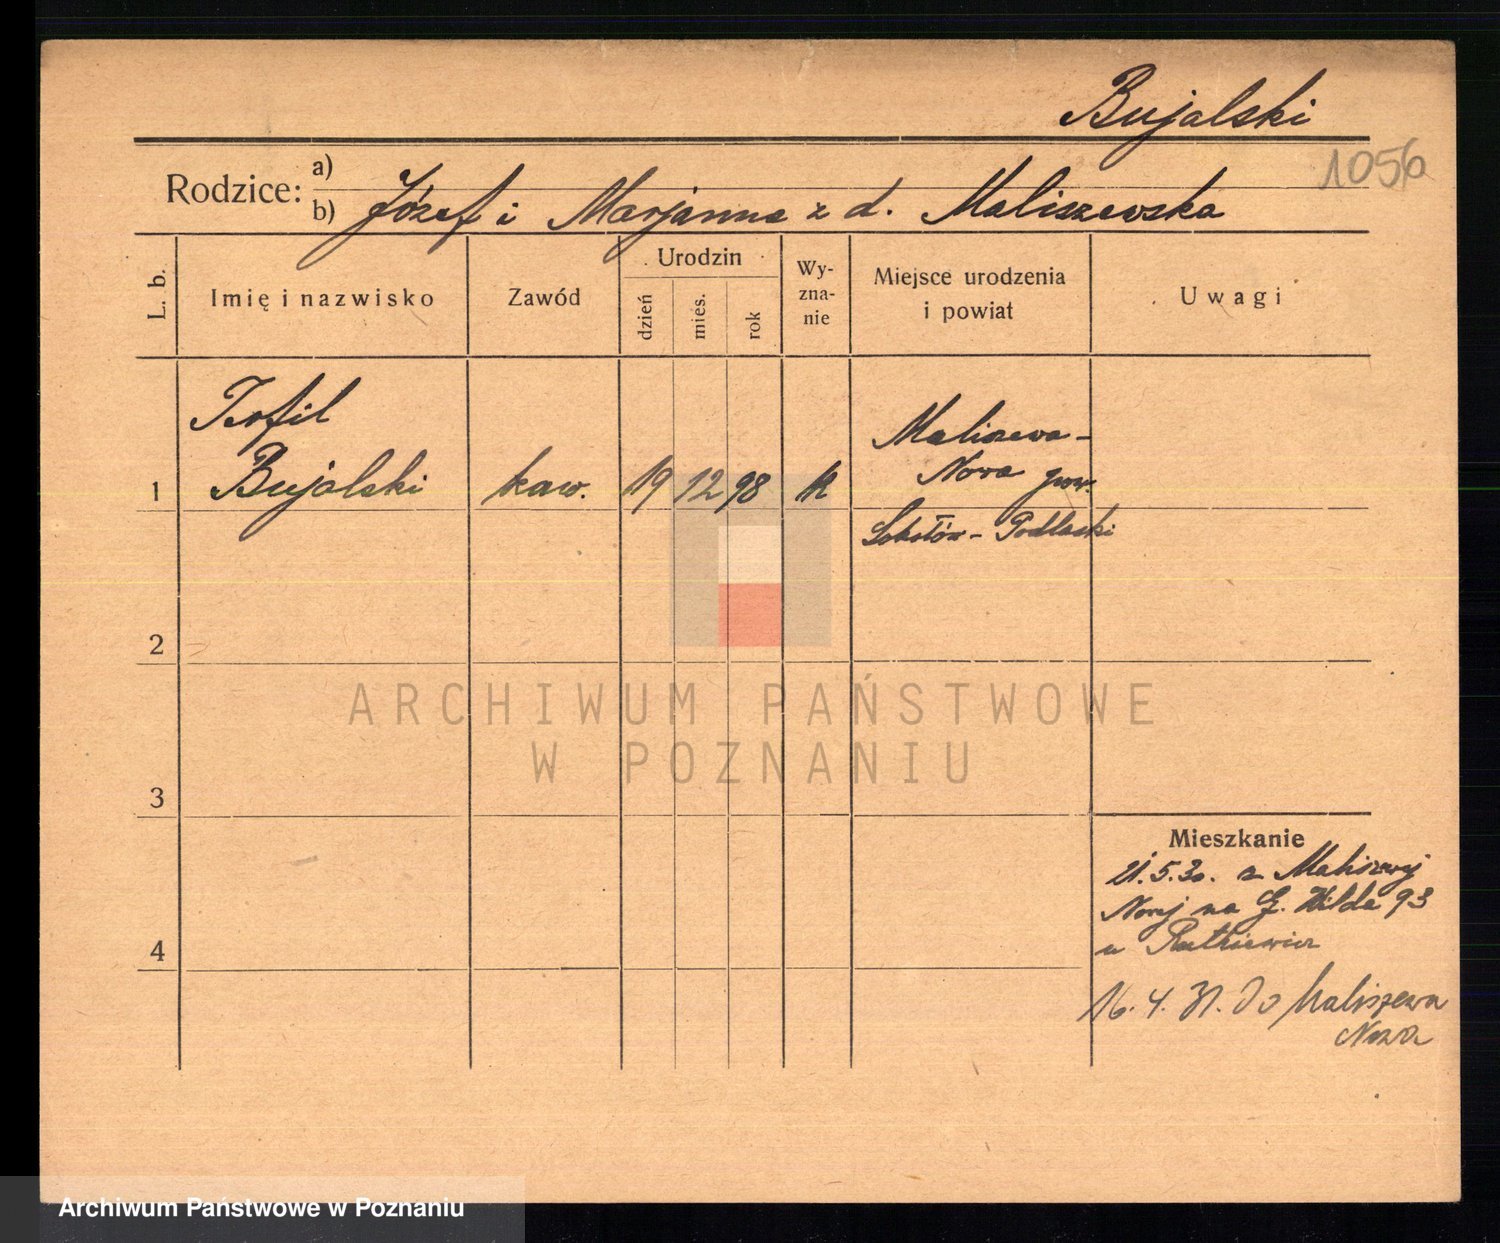 Bujalski
1056
Rodzice: a)
b) Józef i Marjanna z d. Maliszewska
L. b.
Imię i nazwisko
Zawód
Urodzin
dzień
mies.
rok
Wy-
zna-
nie
Miejsce urodzenia
i powiat
Uwagi
1
Teofil
Bujalski
kaw.
19
12
98
Maliszewa-
Nowa pow.
Sokołów-Podlaski
2
3
4
Mieszkanie
21.5.30. z Maliszewej
Nowej na G. Wilda 93
u Rutkiewicz
16.4.31. do Maliszewa
Nowa
ARCHIWUM PAŃSTWOWE
W POZNANIU
Archiwum Państwowe w Poznaniu